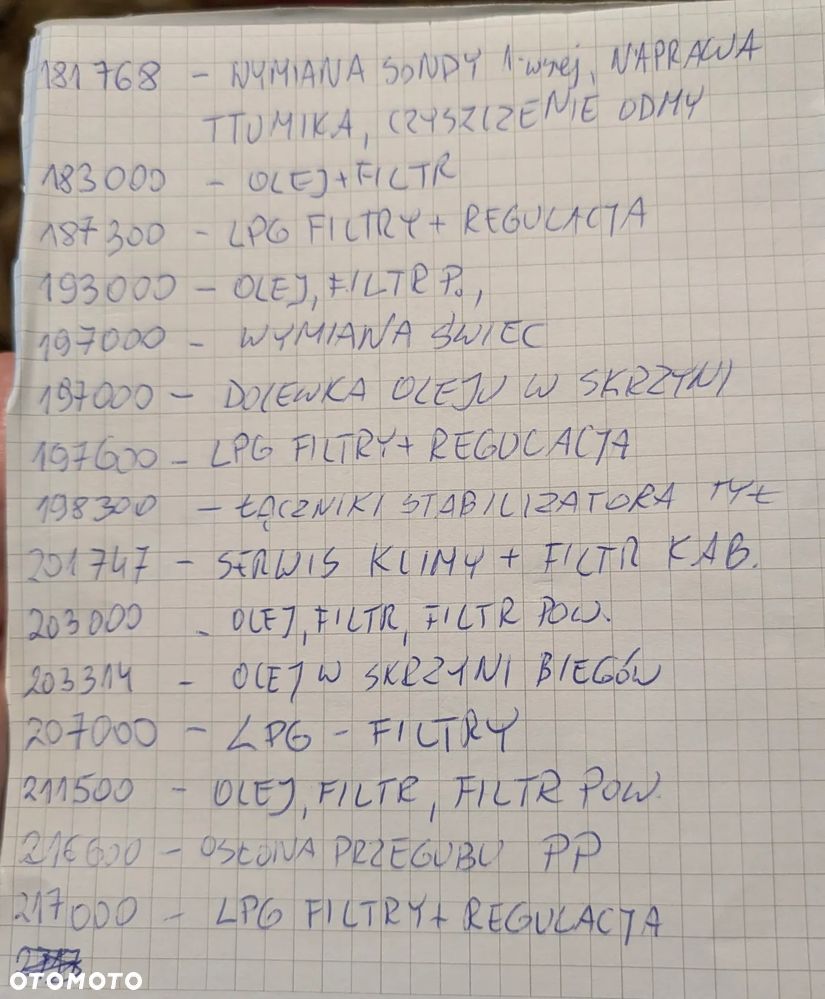 181768 - WYMIANA SONDY 1-wszej, NAPRAWA
TŁUMIKA, CZYSZCZENIE ODMY
183000 - OLEJ+FILTR
187300 - LPG FILTRY + REGULACJA
193000 - OLEJ, FILTR P.,
197000 - WYMIANA ŚWIEC
197000 - DOLEWKA OLEJU W SKRZYNI
197600 - LPG FILTRY + REGULACJA
198300 - ŁĄCZNIKI STABILIZATORA TYŁ
201747 - SERWIS KLIMY + FILTR KAB.
203000 - OLEJ, FILTR, FILTR POW.
203314 - OLEJ W SKRZYNI BIEGÓW
207000 - LPG - FILTRY
211500 - OLEJ, FILTR, FILTR POW.
216600 - OSŁONA PRZEGUBU PP
217000 - LPG FILTRY + REGULACJA
OTOMOTO